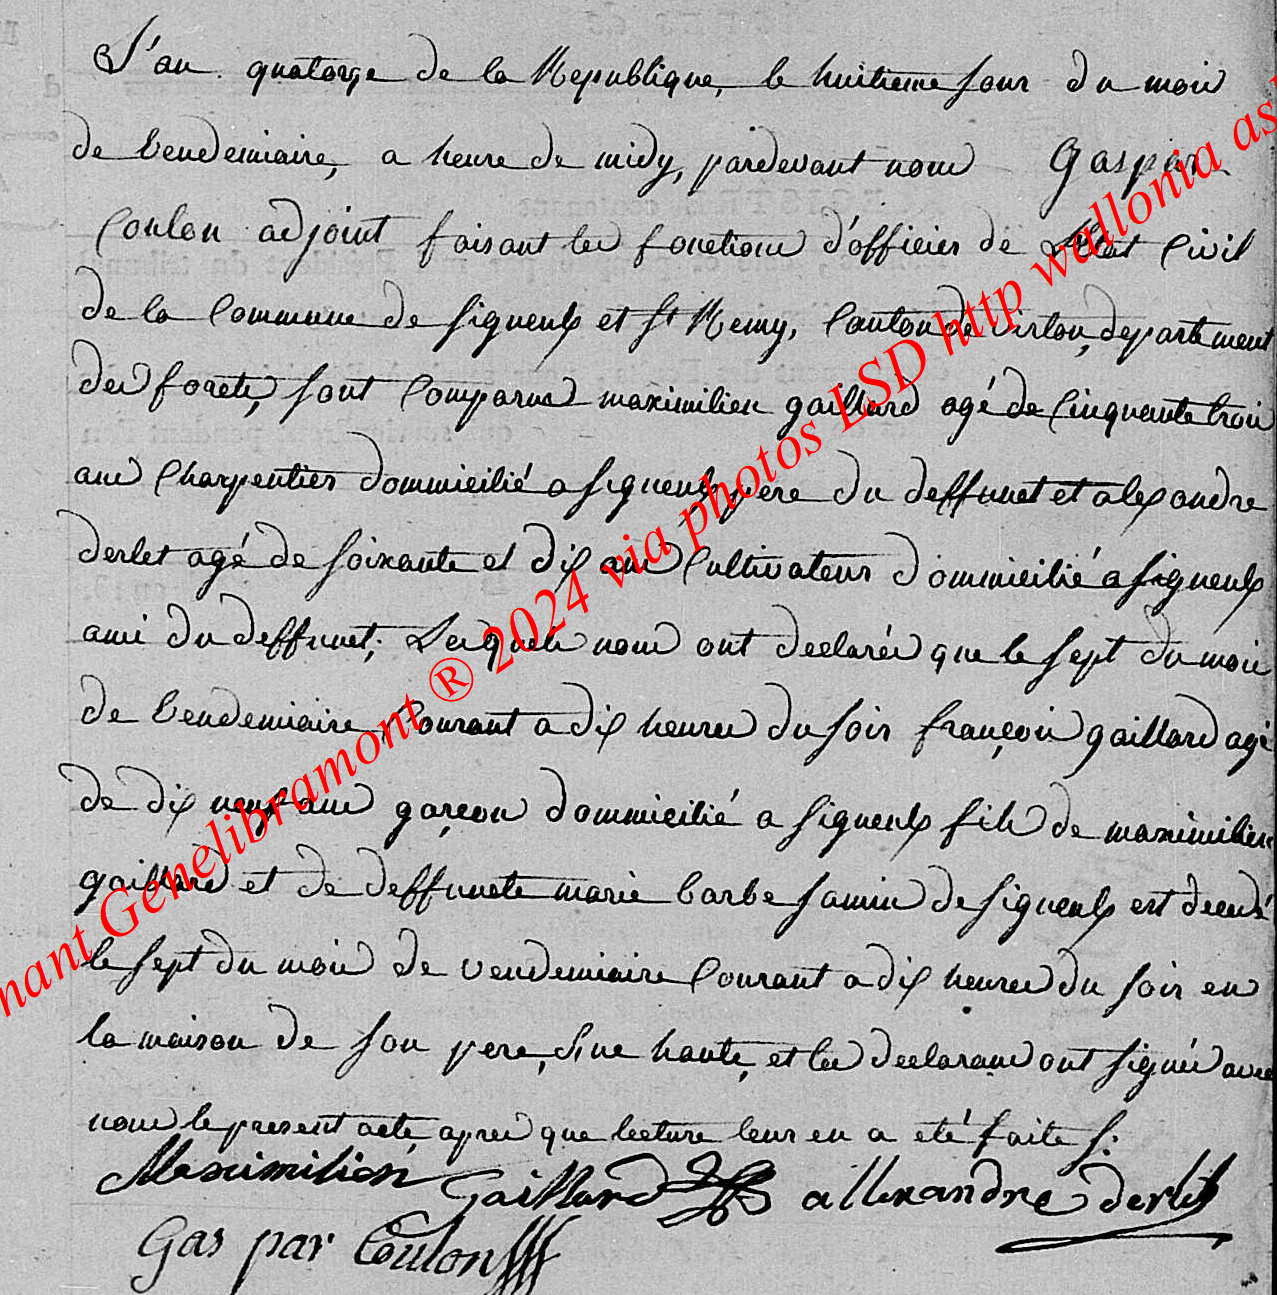 L'an quatorze de la Republique, le huitieme jour du mois
de vendemiaire, a heure de midy, pardevant nous Gaspar
Coulon adjoint faisant les fonctions d'officier de l'Etat Civil
de la Commune de Signeulx et St Remy, Canton de Virton, departement
des forets, sont Comparus maximilien gaillard agé de Cinquante trois
ans Charpentier dommicilié a signeulx pere du deffunct et alexandre
derlet agé de soixante et dix ans Cultivateur dommicilié a signeulx
ami du deffunct, Lesquels nous ont declarés que le sept du mois
de vendemiaire Courant a dix heures du soir françois gaillard agé
de dix neuf ans garçon dommicilié a signeulx fils de maximilien
gaillard et de deffuncte marie barbe jamin de signeulx est decedé
le sept du mois de vendemiaire Courant a dix heures du soir en
la maison de son pere, rue haute, et les declarans ont signés avec
nous le present acte, apres que lecture leur en a eté faite
Maximilien Gaillard allexandre derlet
Gaspar Coulon
nant Genelibramont ® 2024 via photos LSD http wallonia as